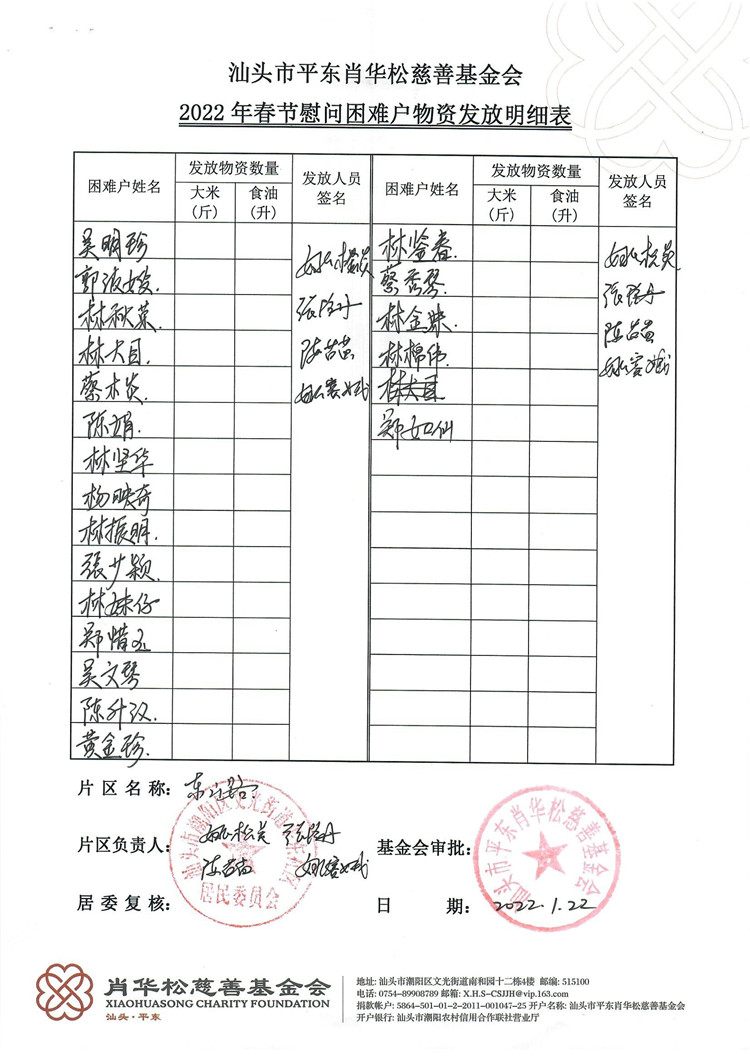 汕头市平东肖华松慈善基金会
2022 年春节慰问困难户物资发放明细表
困难户姓名 发放物资数量 发放人员签名 困难户姓名 发放物资数量 发放人员签名
大米（斤） 食油（升） 大米（斤） 食油（升）
吴明珍 林鉴春
郭波嫂. 蔡秀琴.
林秋菜. 林金妹.
林大目. 林棉伟.
蔡木炎. 林大目
陈娟. 郑如仙
林坚华
杨映奇
林振明.
張少颖.
林妹仔
郑惜玉
吴文琴
陈升汉.
黄金珍.
片 区 名 称：
片区负责人： 基金会审批：
居 委 复 核： 日 期： 2022.1.22
居民委员会
汕头市平东肖华松慈善基金会
肖华松慈善基金会
XIAOHUASONG CHARITY FOUNDATION
汕头·平东
地址: 汕头市潮阳区文光街道南和园十二栋4楼 邮编: 515100
电话: 0754-89908789 邮箱: X.H.S-CSJJH@vip.163.com
捐款帐户: 5864-501-01-2-2011-001047-25 开户名称: 汕头市平东肖华松慈善基金会
开户银行: 汕头市潮阳农村信用合作联社营业厅